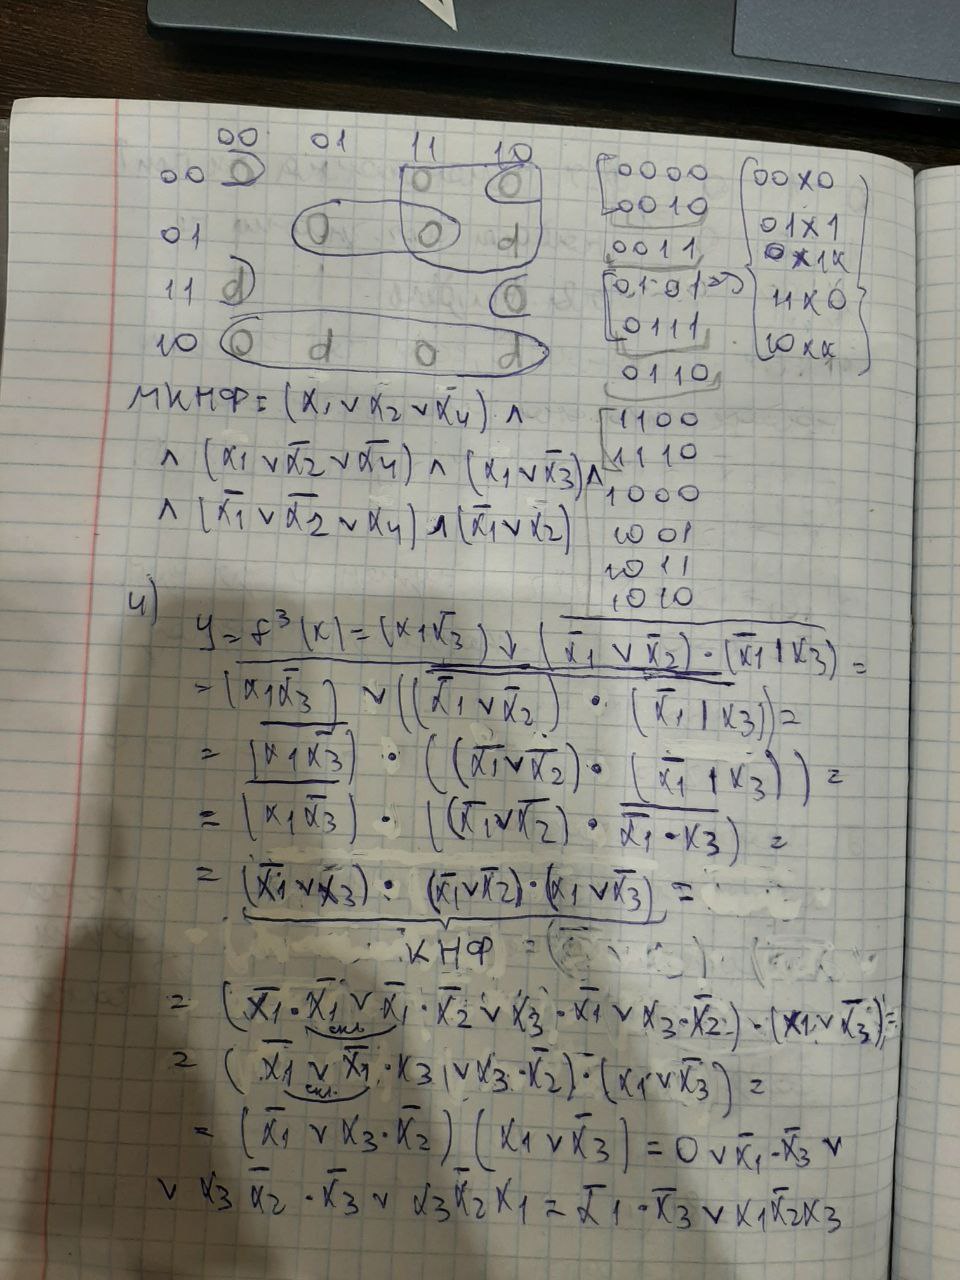 00 01 11 10
00 0 0 0
01 0 0 d
11 d 0
10 0 d 0 d
0000
0010
0011
0101
0111
0110
1100
1110
1000
1001
1011
1010
00x0
01x1
0x1x
11x0
10xx
МКНФ = (x₁ v x̄₂ v x̄₄) ∧
∧ (x̄₁ v x̄₂ v x̄₄) ∧ (x₁ v x̄₃) ∧
∧ (x̄₁ v x̄₂ v x₄) ∧ (x̄₁ v x̄₂)
4)
y = f³(x) = (x₁x̄₃) ↓ (x̄₁ v x̄₂) · (x̄₁ | x₃) =
= (x₁x̄₃) v ((x̄₁ v x̄₂) · (x̄₁ | x₃)) =
= (x₁x̄₃) · ((x̄₁ v x̄₂) · (x̄₁ | x₃)) =
= (x₁x̄₃) · ((x̄₁ v x̄₂) · x̄₁ · x₃) =
= (x̄₁ v x₃) · (x̄₁ v x̄₂) · (x₁ v x̄₃) =
КНФ =
= (x̄₁ · x̄₁ v x̄₁ · x̄₂ v x₃ · x̄₁ v x₃ · x̄₂) · (x₁ v x̄₃) =
скл.
= (x̄₁ v x̄₁ · x₃ v x₃ · x̄₂) · (x₁ v x̄₃) =
скл.
= (x̄₁ v x₃ · x̄₂) (x₁ v x̄₃) = 0 v x̄₁ · x̄₃ v
v x₃ x̄₂ · x̄₃ v x₃x̄₂x₁ = x̄₁ · x̄₃ v x₁x̄₂x₃